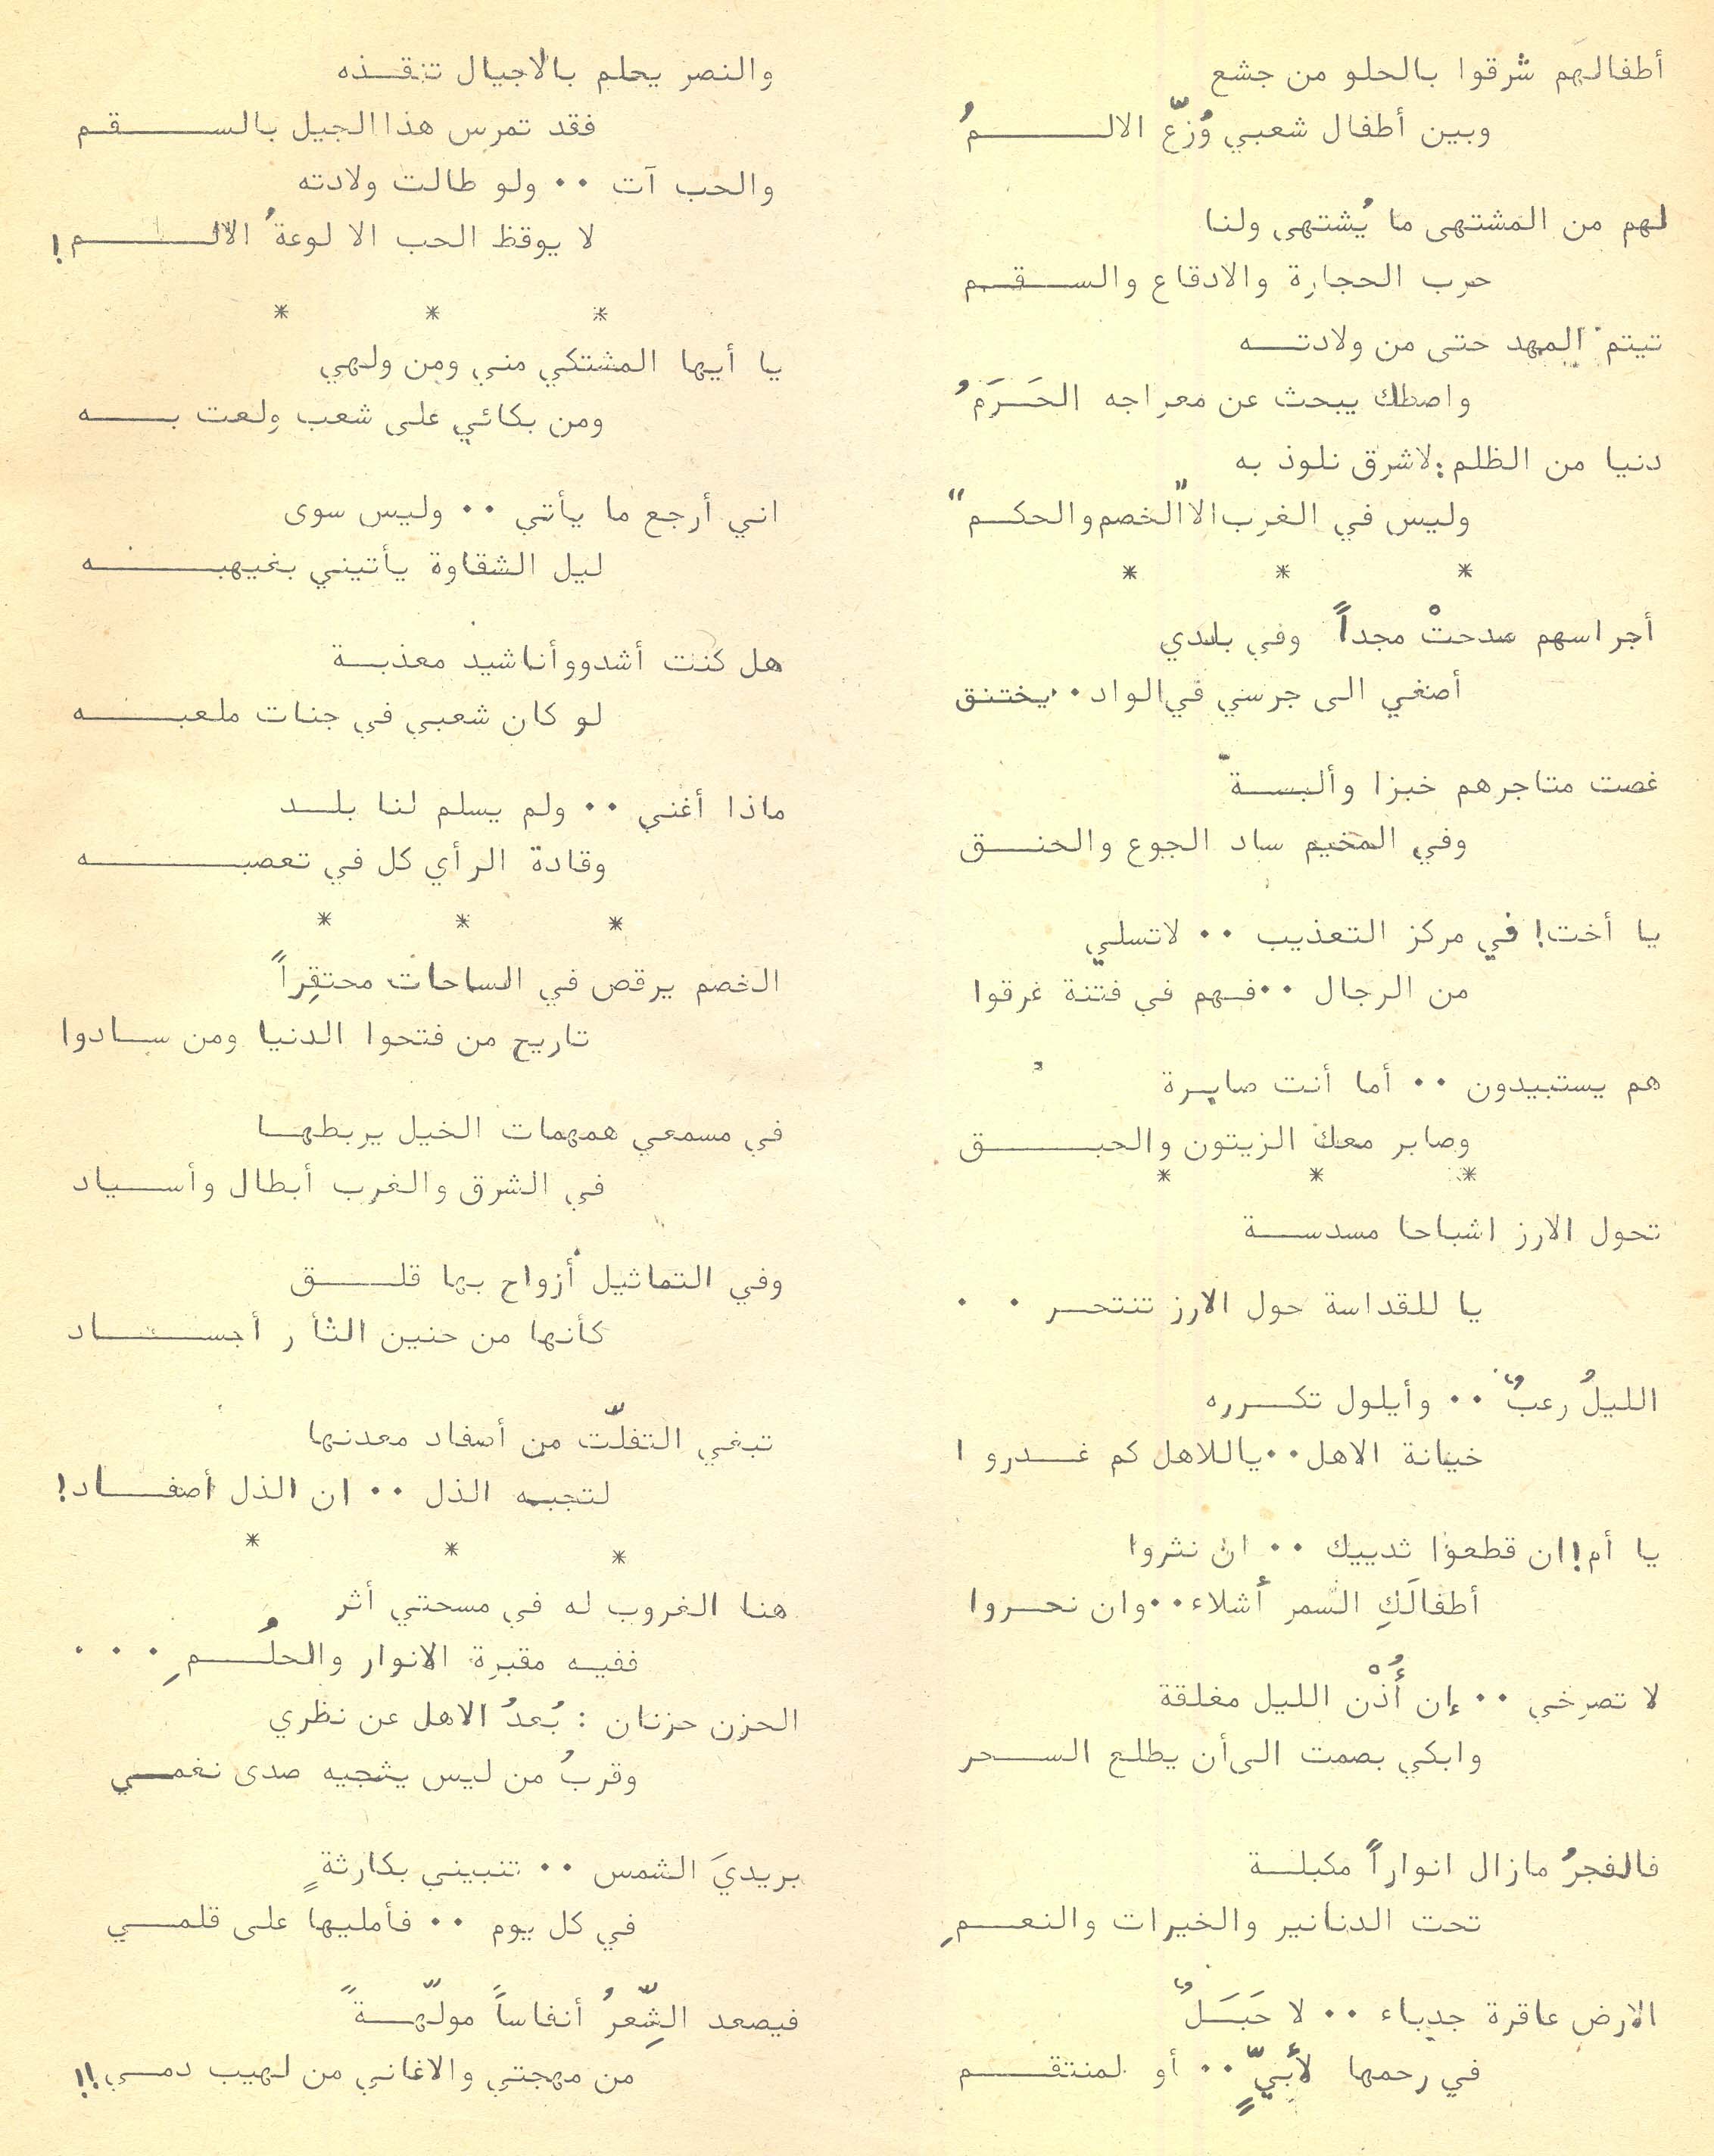 أطفالهم شرقوا بالحلو من جشع
وبين أطفال شعبي وُزّع الالــــمُ
لهم من المشتهى ما يُشتهى ولنا
حرب الحجارة والادقاع والســقــم
تيتم المهد حتى من ولادتــه
واصطك يبحث عن معراجه الحَــرَمُ
دنيا من الظلم : لاشرق نلوذ به
وليس في الغرب الا "الخصم والحكــم"
* * *
أجراسهم صدحتْ مجداً وفي بلدي
أصغي الى جرسي في الواد ٠٠ يختنق
غصت متاجرهم خبزا وألبســة
وفي المخيم ساد الجوع والخنــق
يا أخت! في مركز التعذيب ٠٠ لاتسلي
من الرجال ٠٠ فــهم في فتنة غرقوا
هم يستبيدون ٠٠ أما أنت صابرة
وصابر معك الزيتون والحبــــق
* * *
تحول الارز اشباحا مسدســة
يا للقداسة حول الارز تنتحــر ٠ ٠
الليلُ رعبٌ ٠٠ وأيلول تكــرره
خيانة الاهل ٠٠ ياللاهل كم غــدروا
يا أم! ان قطعوا ثدييك ٠٠ ان نثروا
أطفالَكِ السمر أشلاء ٠٠ وان نحــروا
لا تصرخي ٠٠ إن أُذْن الليل مغلقة
وابكي بصمت الى أن يطلع الســحر
فالفجرُ مازال انواراً مكبلــة
تحت الدنانير والخيرات والنعــمِ
الارض عاقرة جدباء ٠٠ لا حَبَــلٌ
في رحمها لأبيٍّ ٠٠ أو لمنتقــم
والنصر يحلم بالاجيال تنقــذه
فقد تمرس هذا الجيل بالســــقم
والحب آت ٠٠ ولو طالت ولادته
لا يوقظ الحب الا لوعةُ الالــــم!
* * *
يا أيها المشتكي مني ومن ولهي
ومن بكائي على شعب ولعت بــــه
اني أرجع ما يأتي ٠٠ وليس سوى
ليل الشقاوة يأتيني بغيهبــــه
هل كنت أشدو وأناشيد معذبــة
لو كان شعبي في جنات ملعبــــه
ماذا أغني ٠٠ ولم يسلم لنا بلــد
وقادة الرأي كل في تعصبــــه
* * *
الخصم يرقص في الساحات محتقِراً
تاريح من فتحوا الدنيا ومن ســادوا
في مسمعي همهمات الخيل يربطهــا
في الشرق والغرب أبطال وأســياد
وفي التماثيل أزواح بها قلــــق
كأنها من حنين الثأر أجســــاد
تبغي التفلّت من أصفاد معدنها
لتجبــه الذل ٠٠ ان الذل أصفــاد!
* * *
هنا الغروب له في مسحتي أثر
ففيــه مقبرة الانوار والحلُــمِ ٠ ٠ ٠
الحزن حزنان : بُعدُ الاهل عن نظري
وقربُ من ليس يشجيه صدى نغمــي
بريديَ الشمس ٠٠ تنبيني بكارثةٍ
في كل يوم ٠٠ فأمليها على قلمــي
فيصعد الشِّعرُ أنفاساً مولّهــةً
من مهجتي والاغاني من لهيب دمــي!!